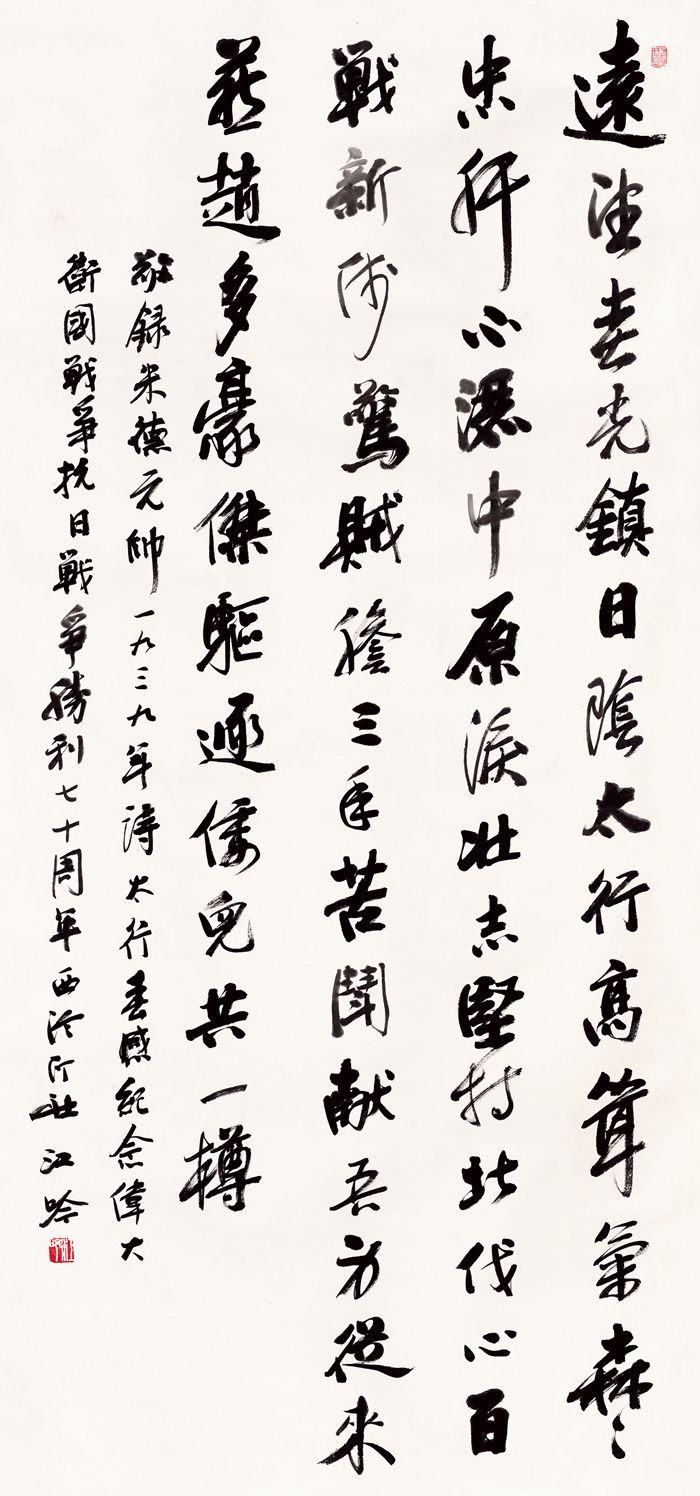 遠望春光鎮日陰太行高聳氣森〻
忠肝不灑中原淚壯志堅持北伐心百
戰新師驚賊膽三年苦鬪献吾身從來
燕趙多豪傑驅逐倭兒共一樽
敬録朱德元帥一九三九年詩太行春感紀念偉大
衛國戰爭抗日戰爭勝利七十周年西泠印社江吟